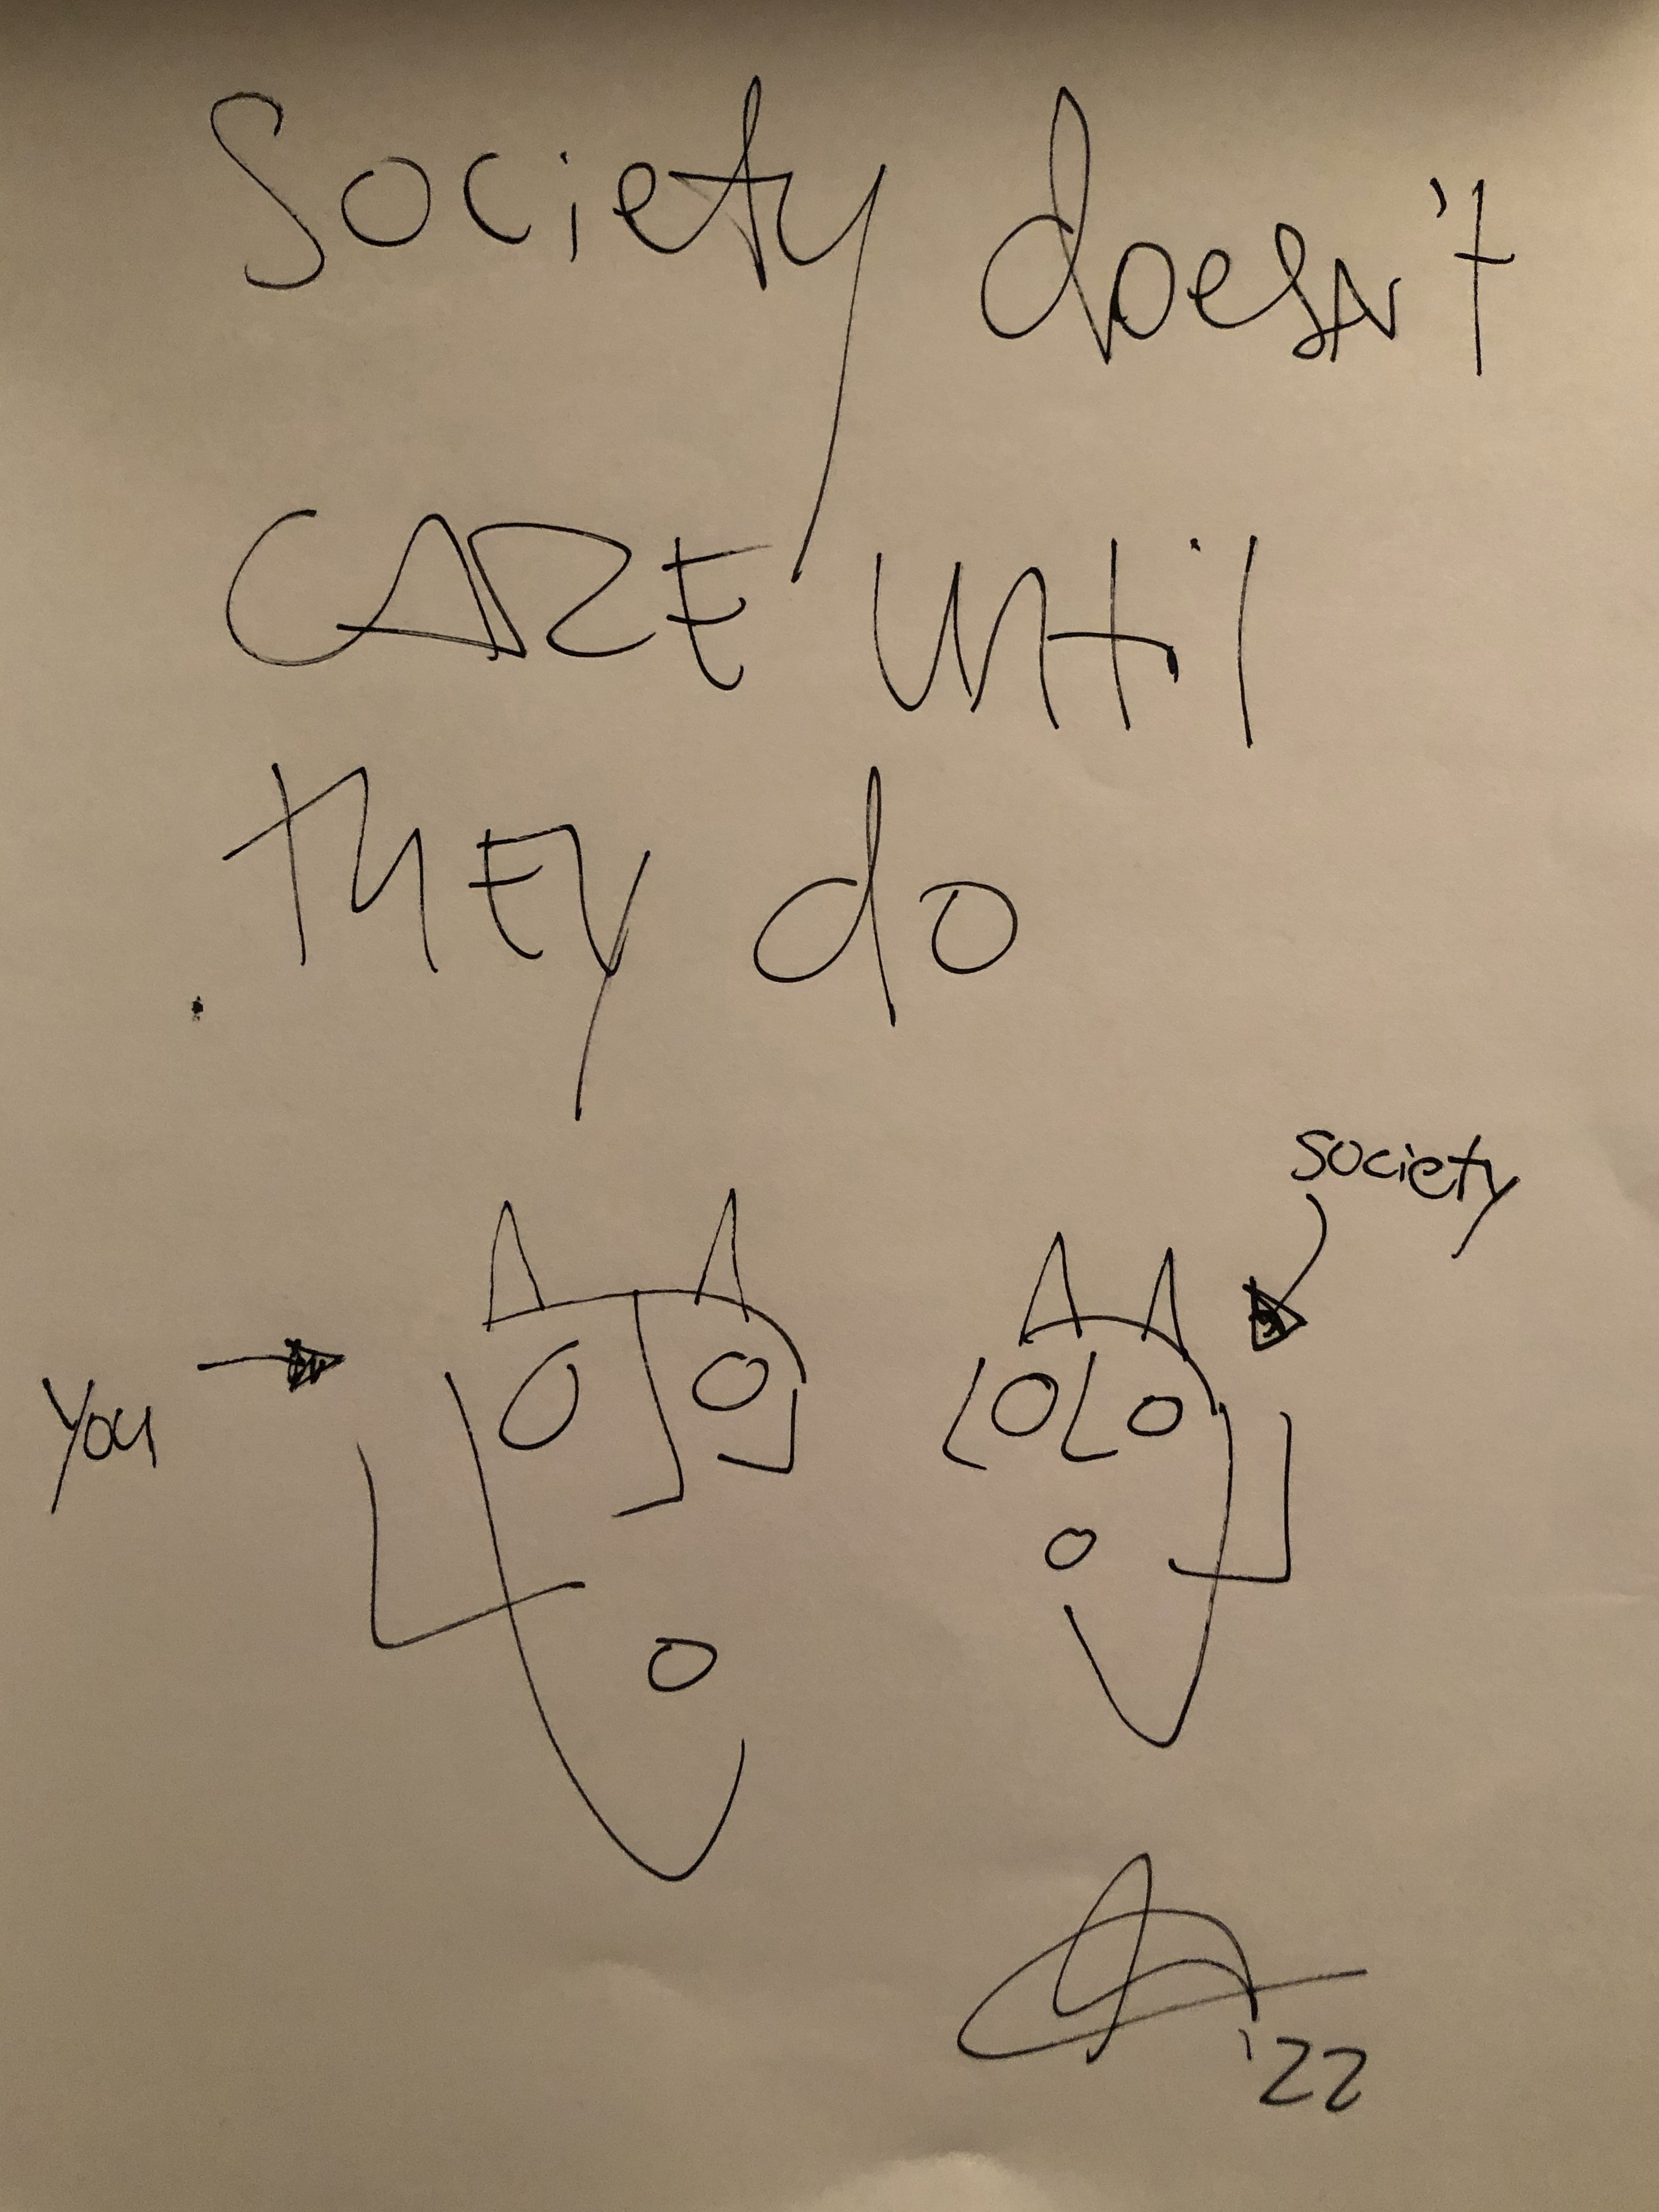 Society doesn't
CARE until
THEY do
society
You
'22